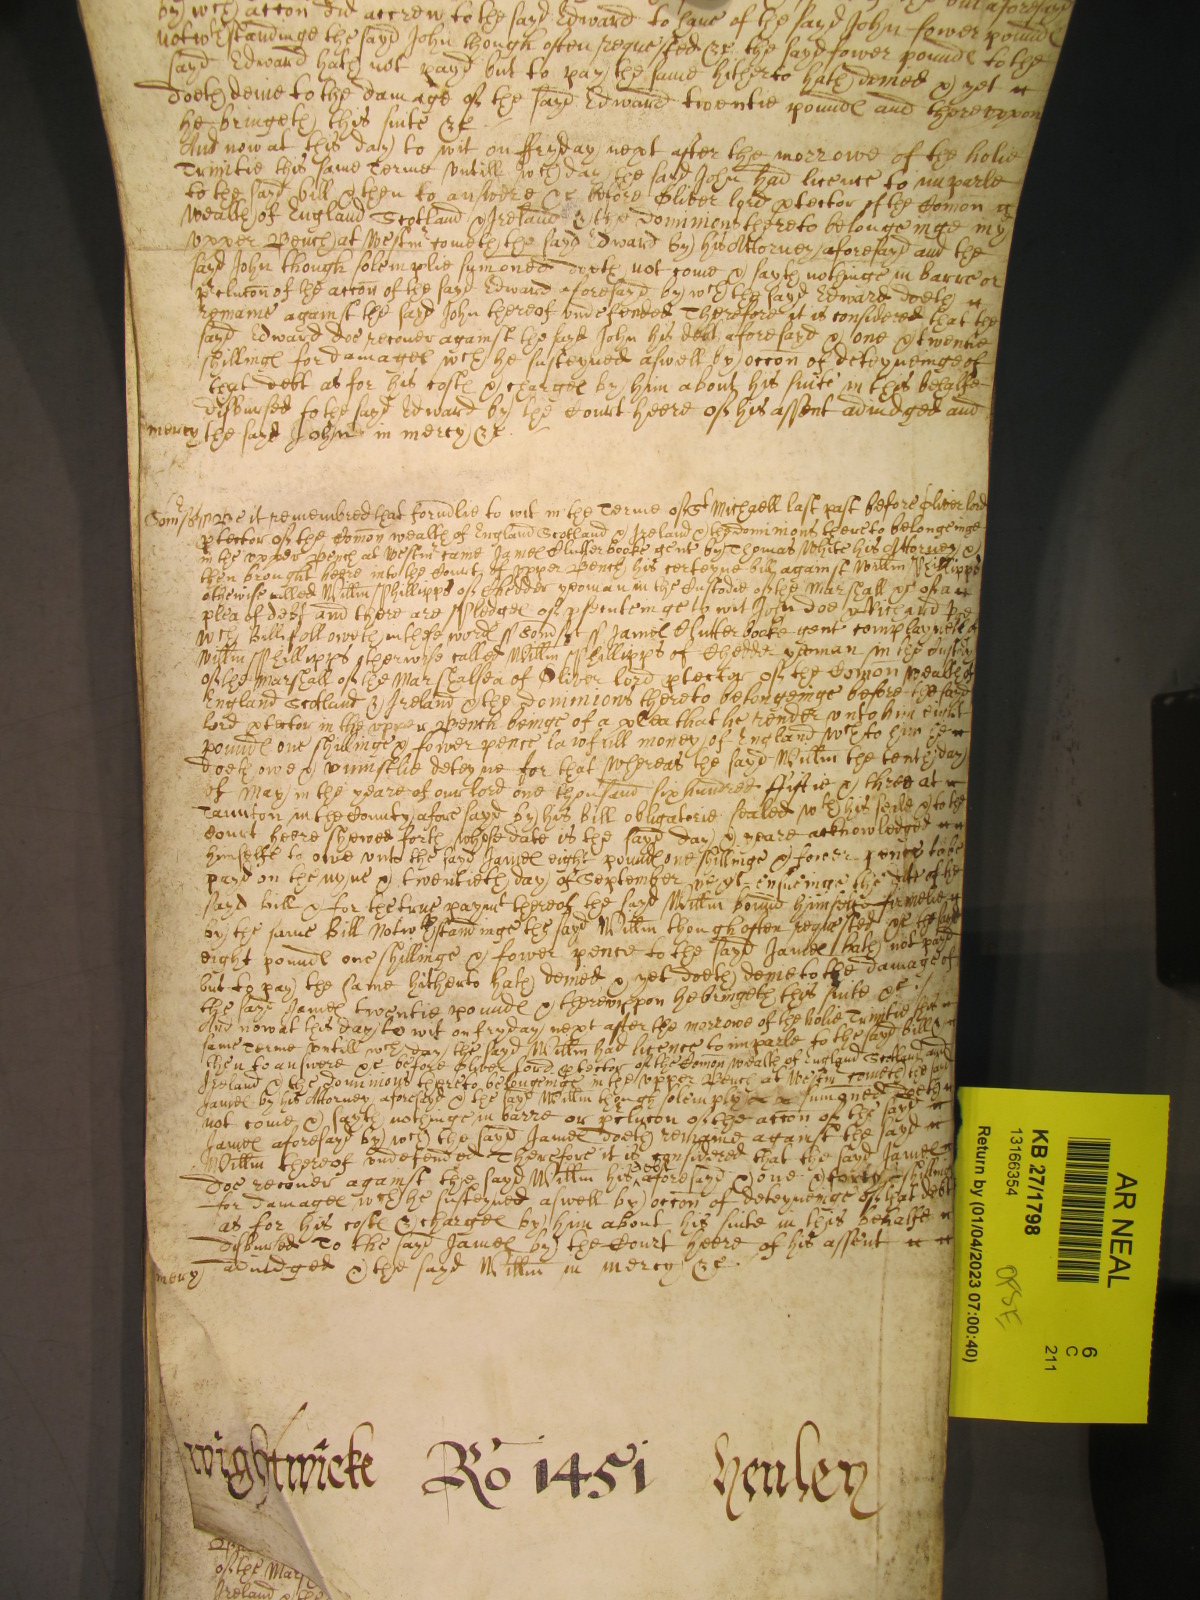 by wch accon did accrew to the sayd Edward to have of the sayd John fower pound
notwthstandinge the sayd John though often requested &c the sayd fower pound to the
sayd Edward hath not payd but to pay the same hitherto hath denied & yet
doeth denie to the damage of the sayd Edward twentie pound and thereuppon
he bringeth this suite &c
And now at this day to wit on ffryday next after the morrowe of the holie
Trinitie this same Terme untill wch day the sayd John had licence to imparle
to the sayd bill & then to answere &c before Oliver lord ptector of the Comon
wealth of England Scotland & Ireland & the dominions thereto belongeinge in the
upper Bench at Westmr cometh the sayd Edward by his Attorney aforesayd and the
sayd John though solemplie sumoned doeth not come & sayth nothinge in barre or
pclucon of the accon of the sayd Edward aforesayd by wch the sayd Edward doeth
remaine against the sayd John thereof undefended Therefore it is considered that the
sayd Edward doe recover against the sayd John his debt aforesayd & one & twentie
shilling for damages wch he susteyned aswell by occon of deteyneinge of
that debt as for his cost & charges by him about his suite in this behalfe
disbursed to the sayd Edward by the Court heere of his assent adiudged and
mercy the sayd John in mercy &c.
Somst ss Bee it remembred that formlie to wit in the Terme of St Michaell last past before Oliver lord
ptector of the Comon wealth of England Scotland & Ireland & the dominions thereto belongeinge
in the upper Bench at Westmr came James Clutterbooke gent by Thomas White his Attorney &
then brought heere into the Court of upper Bench his certeyne bill against Willm Phillipps
otherwise called Willm Phillipps of Chedder yeoman in the Custodie of the Marshall &c of a
plea of debt and there are Pledges of psecuteinge to wit John Doe & Richard Roe
wch Bill followeth in these words ss Somst ss James Clutterbooke gent complayneth of
Willm Phillipps otherwise called Willm Phillipps of Chedder yeoman in the custody
of the Marshall of the Marshalsea of Oliver lord ptector of the Comon wealth of
England Scotland & Ireland & the dominions thereto belongeinge before the sayd
lord ptector in the upper Bench beinge of a plea that he render unto him eight
pound one shillinge & fower pence lawfull money of England wch to him he
doeth owe & uniustlie deteyne for that Whereas the sayd Willm the tenth day
of May in the yeare of our lord one thousand six hundred ffiftie & three at
Taunton in the County aforesayd by his bill obligatorie sealed wth his seale & to the
Court heere shewed forth whose date is the sayd day & yeare acknowledged
himselfe to owe unto the sayd James eight pound one shillinge & fower pence to be
payd on the nyne & twentieth day of September next ensueinge the date of the
sayd bill & for the true paymt thereof the sayd Willm bound himselfe firmelie
by the same bill Notwthstandinge the sayd Willm though often requested &c the sayd
eight pound one shillinge & fower pence to the sayd James hath not payd
but to pay the same hitherto hath denied & yet doeth denie to the damage of
the sayd James twentie pound & thereuppon he bringeth this suite &c.
And now at this day to wit on fryday next after the morrowe of the holie Trinitie this
same Terme untill wch day the sayd Willm had licence to imparle to the sayd bill &
then to answere &c before Oliver lord ptector of the Comon wealth of England Scotland and
Ireland & the dominions thereto belongeinge in the upper Bench at Westmr cometh the sayd
James by his Attorney aforesayd & the sayd Willm though solemply sumoned doeth
not come & sayth nothinge in barre or pclucon of the accon of the sayd
James aforesayd by wch the sayd James doeth remaine against the sayd
Willm thereof undefended Therefore it is considered that the sayd James
doe recover against the sayd Willm his debt aforesayd & one & forty shillings
for damages wch he susteyned aswell by occon of deteyneinge of that debt
as for his cost & charges by him about his suite in this behalfe
disbursed To the sayd James by the Court heere of his assent
mercy adiudged & the sayd Willm in mercy &c.
Wightwicke Ro 1451 Henley
of the Mars
Ireland & the
AR NEAL
6
C
211
KB 27/1798
13166354
Return by (01/04/2023 07:00:40)